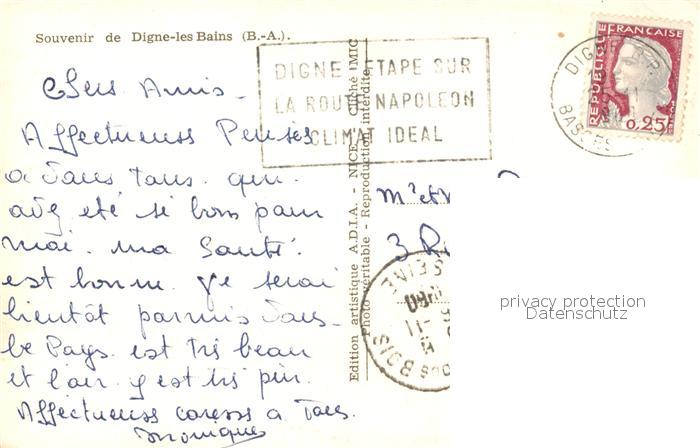 Souvenir de Digne-les Bains (B.-A.).
DIGNE ETAPE SUR
LA ROUTE NAPOLEON
CLIMAT IDEAL
DIGNE
BASSES
REPUBLIQUE FRANÇAISE
0,25F
Chers Amis
Affectueuses Pensées
a Vous tous. qui
avez été si bons pour
moi. ma Santé
est bonne. Je serai
bientôt parmis Vous
Le Pays est très beau
et l'air y est très pur.
Affectueuses caresses a Tous.
Monique
Edition artistique A.D.I.A. - NICE - Cliché MIC
Photo véritable - Reproduction interdite
3 R
SEINE
BOIS
privacy protection
Datenschutz